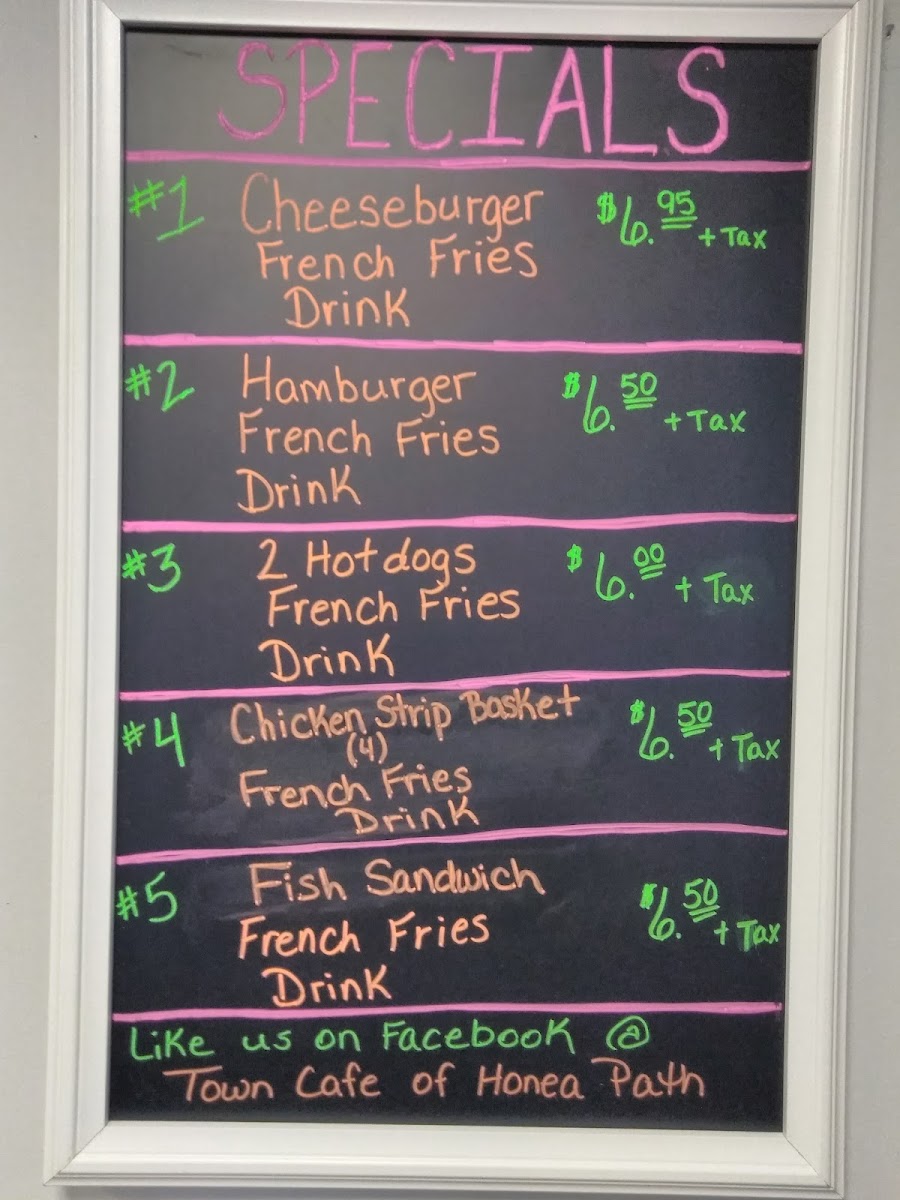 SPECIALS
#1 Cheeseburger $6.95 + Tax
French Fries
Drink
#2 Hamburger $6.50 + Tax
French Fries
Drink
#3 2 Hotdogs $6.00 + Tax
French Fries
Drink
#4 Chicken Strip Basket $6.50 + Tax
(4)
French Fries
Drink
#5 Fish Sandwich $6.50 + Tax
French Fries
Drink
Like us on Facebook @
Town Cafe of Honea Path